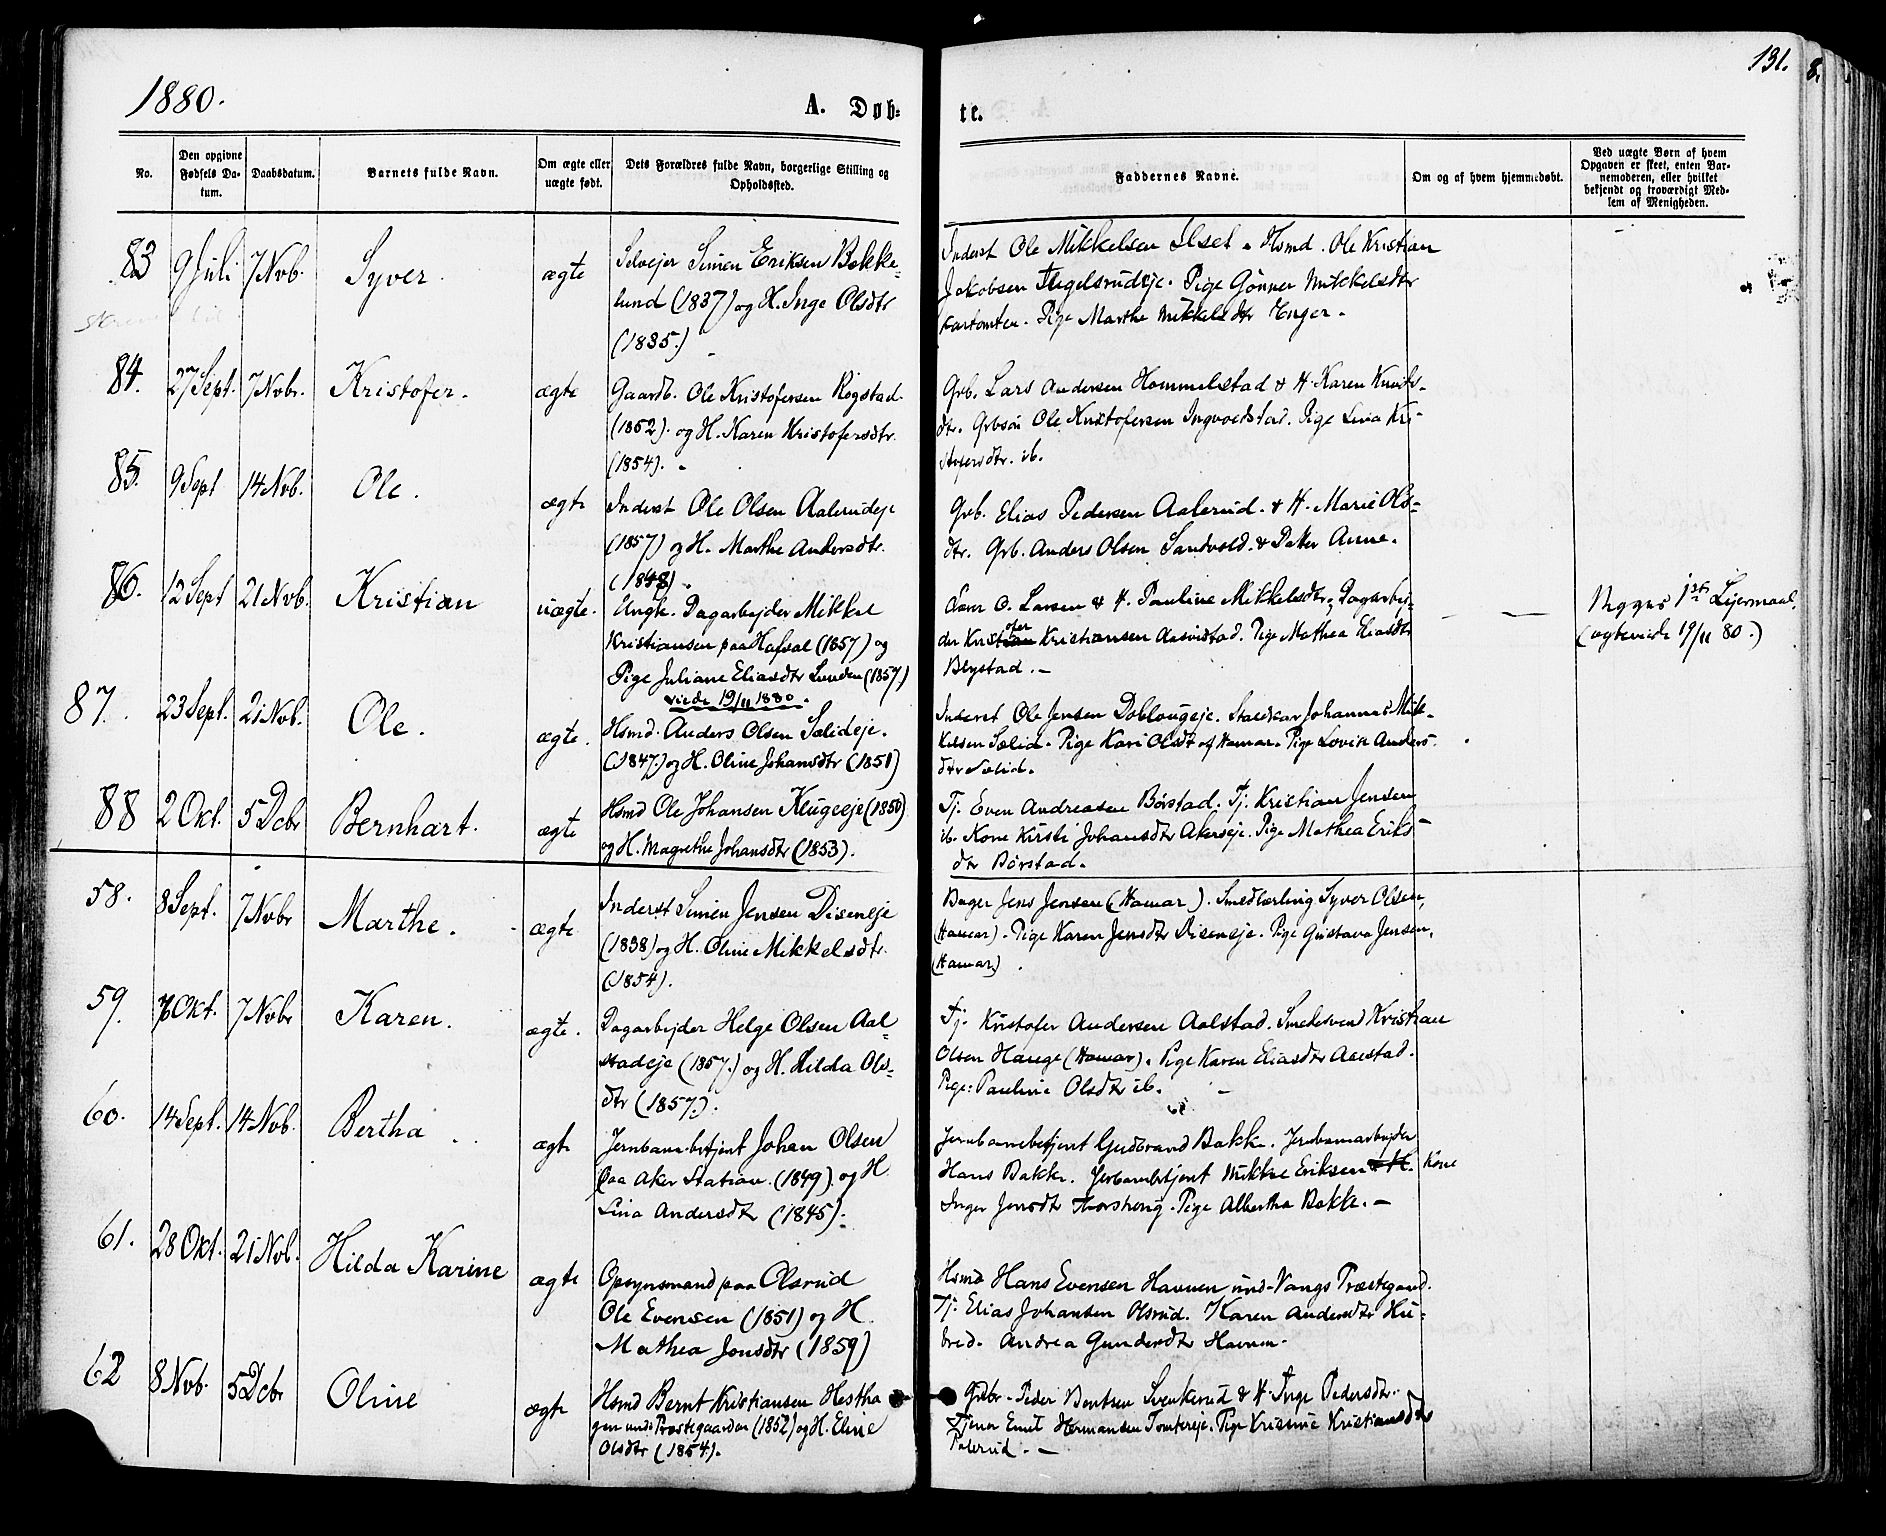 131.
8.
1880.
A. Døb-
te.
No.
Den opgivne Fødsels Da-tum.
Daabsdatum.
Barnets fulde Navn.
Om ægte eller uægte født.
Dets Forældres fulde Navn, borgerlige Stilling og Opholdssted.
Faddernes Navne.
Om og af hvem hjemmedøbt.
Ved uægte Børn af hvem Opgaven er skeet, enten Bar-nemoderen, eller hvilket bekjendt og troværdigt Med-lem af Menigheden.
83 9 Juli 7 Nvb. Syver. ægte
Selvejer Simen Eriksen Bække-
lund (1837) og H. Inge Olsdtr
(1835.)
Inderst Ole Mikkelsen Ilset. Hsmd. Ole Kristian
Jakobsen Tegelsrudeje. Pige Gønner Mikkelsdtr
Pige Marthe Mikkelsdtr Enger.
84. 27 Sept. 7 Nvbr. Kristofer. ægte
Gaardb. Ole Kristofersen Rogstad
(1852). og H. Karen Kristofersdtr.
(1854).
Grb. Lars Andersen Hommelstad & H. Karen Knuds-
dtr. Grbsøn Ole Kristofersen Ingvoldstad. Pige Lina Kri-
stofersdtr. ib.
85. 9 Sept 14 Nvb. Ole. ægte
Inderst Ole Olsen Aalerudeje
(1857) og H. Marthe Andersdtr.
(1848)
Grb. Elias Pedersen Aalerud. & H. Marie Ols-
dtr. Grb. Anders Olsen Sandvold. & Datter Anne.
86. 12 Sept 21 Nvb. Kristian uægte.
Ungk. Dagarbejder Mikkel
Kristiansen paa Hafsal (1857) og
Pige Juliane Eliasdtr Lunden (1857.)
viede 19/11 1880.
O. Larsen & H. Pauline Mikkelsdtr, Dagarbej-
der Kristofer Kristiansen Aasvidstad. Pige Mathea Eliasdtr
Blystad. —
—
1ste Lejermaal.
(ægteviede 19/11 80.)
87. 23 Sept. 21 Nvb. Ole. ægte.
Hsmd. Anders Olsen Sælideje.
(1847.) og H. Oline Johansdtr (1851)
Inderst Ole Jensen Doblougeje. Staldkar Johannes Mik-
kelsen Sælid. Pige Kari Olsdtr af Hamar. Pige Lovise Anders-
dtr Sælid.
88 2 Okt. 5 Dcbr Bernhart. ægte
Hsmd Ole Johansen Klugeeje (1850)
og H. Magrethe Johansdtr (1853).
Tj. Even Andreasen Børstad. Tj. Kristian Jensen
ib. Kone Kirsti Johansdtr Akerseje. Pige Mathea Eriks-
dtr Børstad.
58. 8 Sept. 7 Nvbr Marthe. ægte
Inderst Simen Jensen Diseneje
(1838) og H. Oline Mikkelsdtr.
(1854).
Bager Jens Jensen (Hamar). Smedlærling Syver Olsen,
(Hamar). Pige Karen Jensdtr Diseneje. Pige Gustava Jensen,
(Hamar)
59. 7 Okt. 7 Nvbr Karen. ægte.
Dagarbejder Helge Olsen Aal-
stadeje (1857.) og H. Hilda Ols-
dtr (1857.).
Tj. Kristofer Andersen Aalstad. Smedesvend Kristian
Olsen Hauge (Hamar). Pige Karen Eliasdtr Aalstad.
Pige: Pauline Olsdtr ib.
60. 14 Sept. 14 Nvb. Bertha ægte
Jernbanebetjent Johan Olsen
paa Aker Station. (1849). og H
Lina Andersdtr (1845).
Jernbanebetjent Gudbrand Bakke. Jernbanearbejder
Hans Bakke. Jernbanebetjent Mikkel Eriksen & H. Kone
Inger Jensdtr Thorshaug. Pige Albertha Bakke. —
61. 28 Okt. 21 Nvb. Hilda Karine ægte
Opsynsmand paa Olsrud
Ole Evensen (1851) og H.
Mathea Jonsdtr (1859)
Hsmd Hans Evensen Havnen und. Vangs Præstegaard.
Tj. Elias Johansen Olsrud. Karen Andersdtr Hu-
bred. Andrea Gundersdtr Havnen.
62 8 Nvb. 5 Dcbr Oline ægte
Hsmd Bernt Kristiansen Hestha
gen und: Præstegaarden (1852) og H. Eline
Olsdtr (1854.).
Grbr. Peder Bentsen Svenkerud & H. Inge Pedersdtr.
Tjener Emil Hermansen Tomtereje. Pige Kristine Kristiansdtr